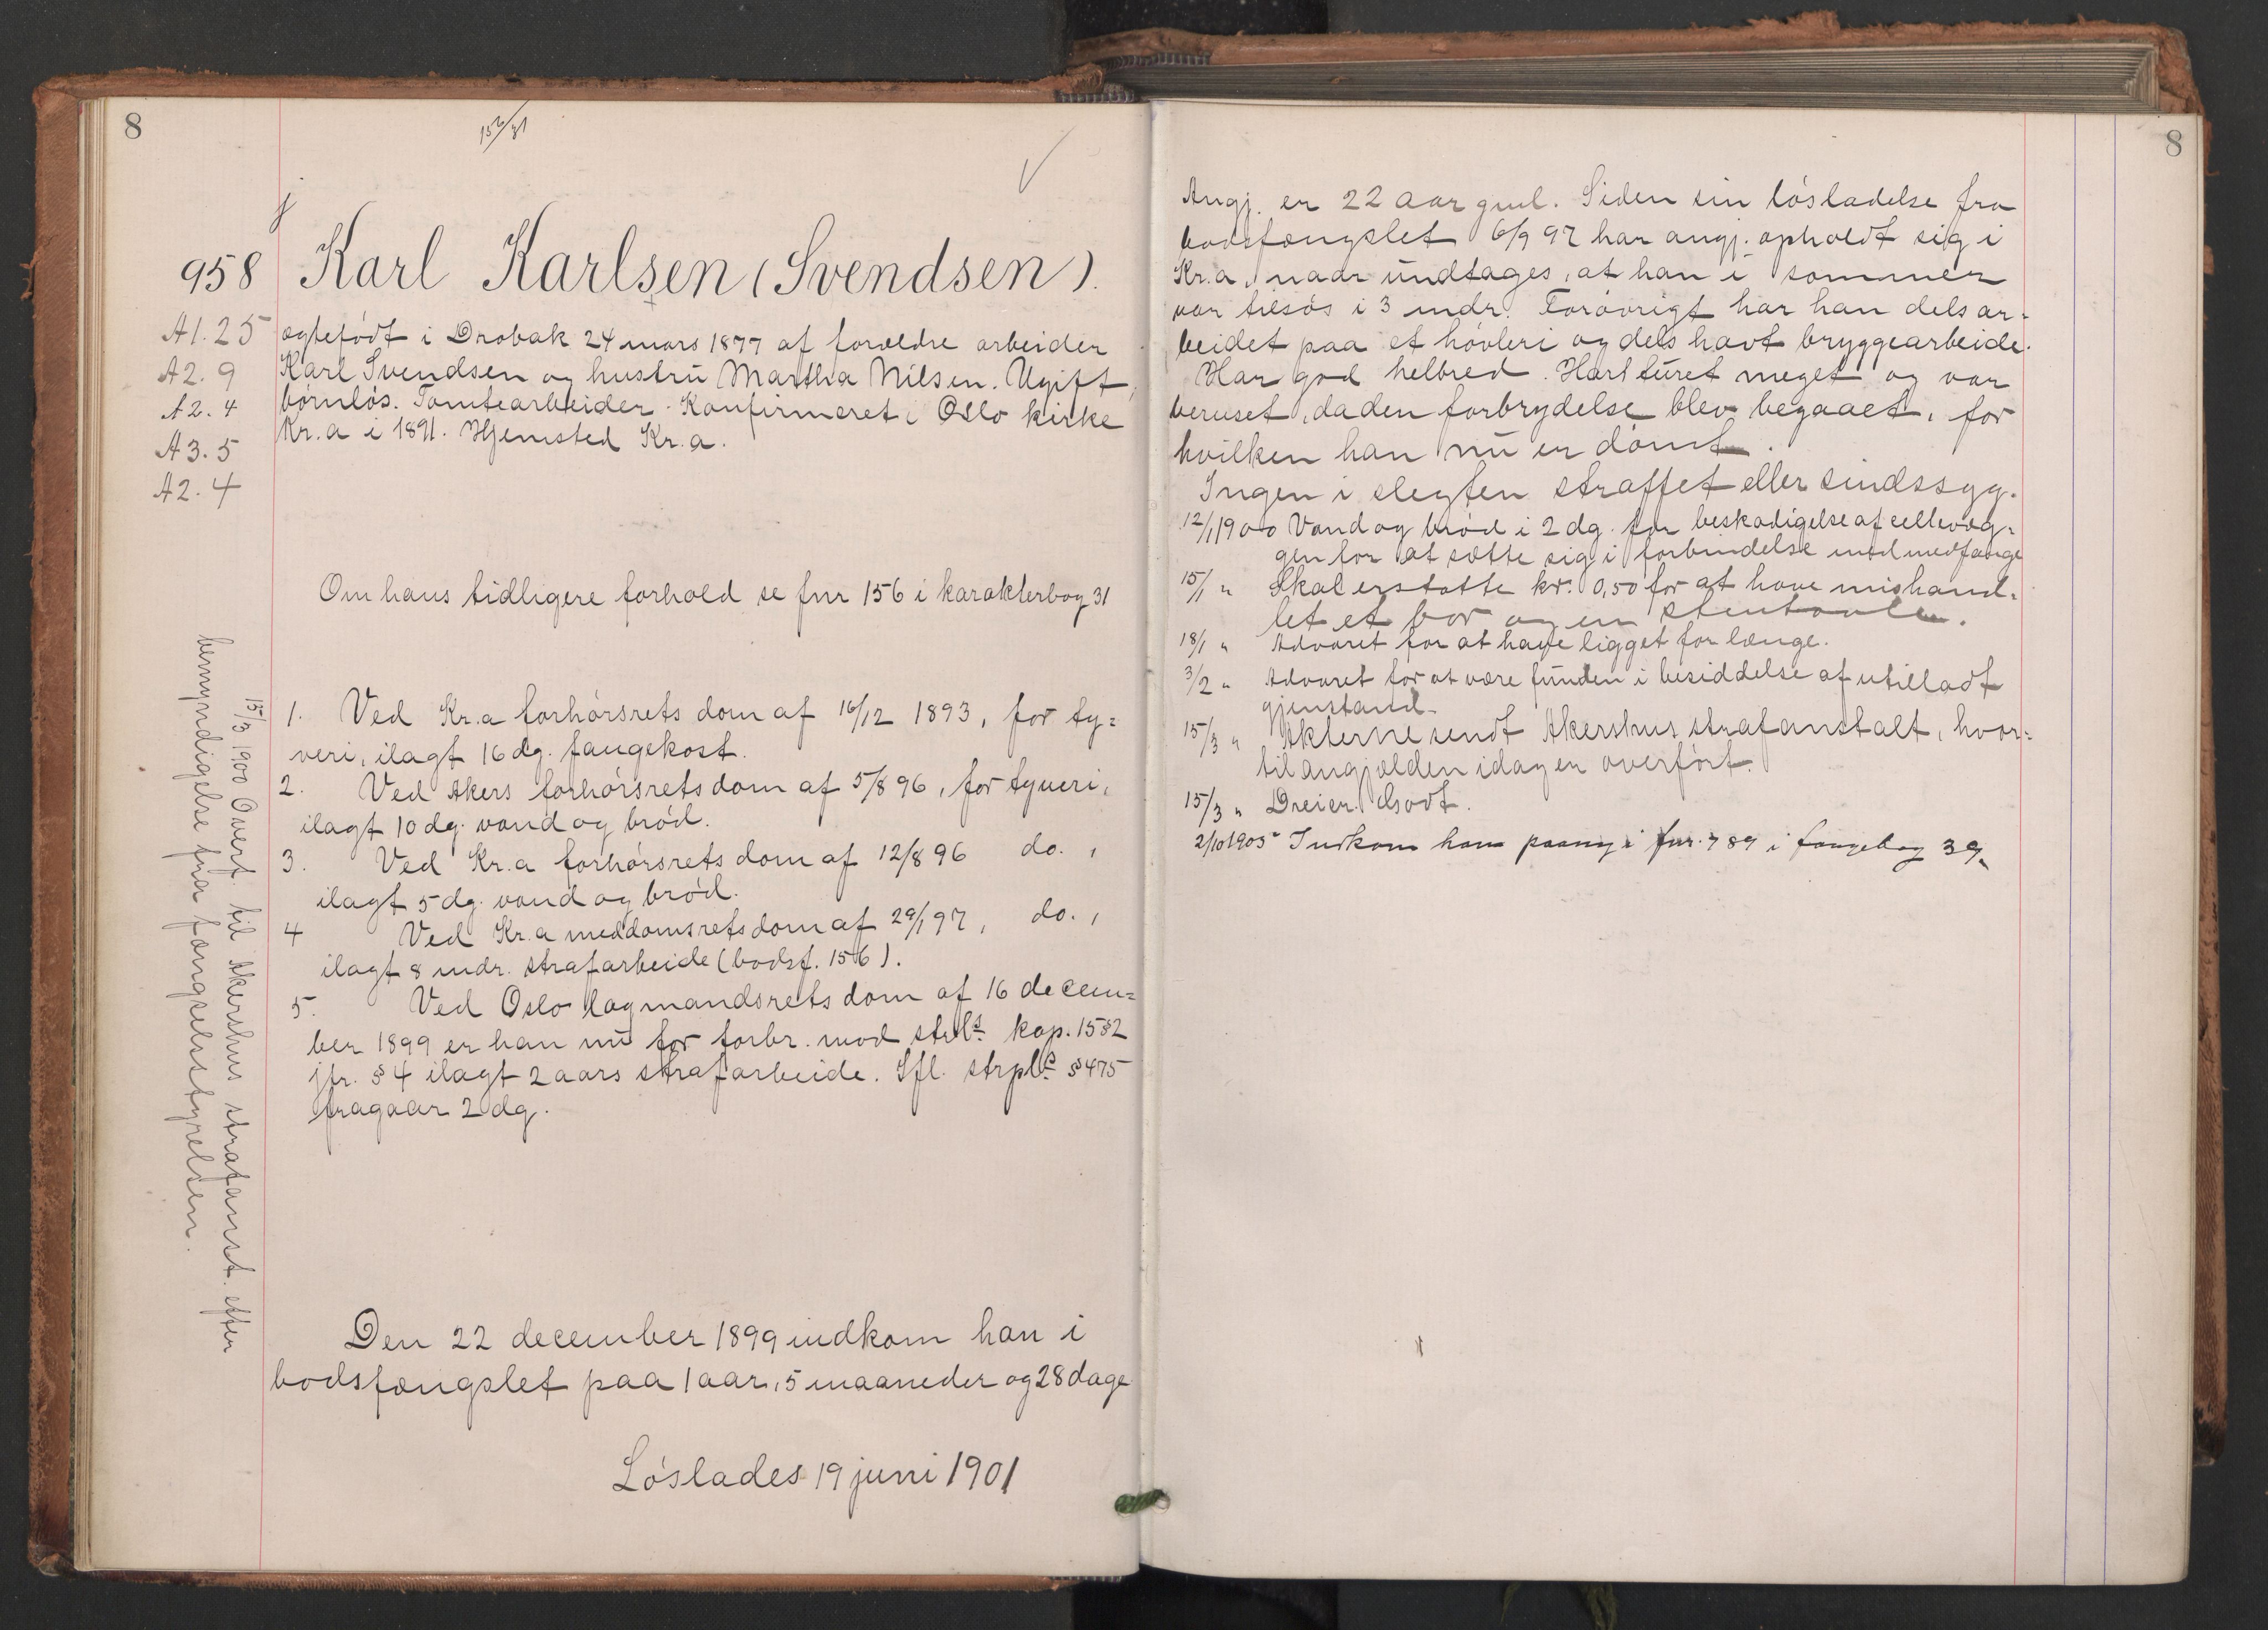 8
156/31
958
Karl Karlsen (Svendsen).
A1. 25
A2. 9
A2. 4
A3. 5
A2. 4
ægtefødt i Drøbak 24 mars 1877 af forældre arbeider
Karl Svendsen og hustru Martha Nilsen. Ugift,
børnløs. Tomtearbeider. Konfirmeret i Oslo kirke
Kr.a i 1891. Hjemsted Kr.a.
Om hans tidligere forhold se fnr 156 i karakterbog 31
1. Ved Kr.a forhørsrets dom af 16/12 1893, for ty=
veri, ilagt 16 dg. fangekost.
2. Ved Akers forhørsrets dom af 5/8 96, for tyveri,
ilagt 10 dg. vand og brød.
3. Ved Kr.a forhørsrets dom af 12/8 96 do.,
ilagt 5 dg. vand og brød.
4 Ved Kr.a meddomsrets dom af 29/1 97, do.,
ilagt 8 mdr. strafarbeide (bodsf. 156).
5. Ved Oslo lagmandsrets dom af 16 decem=
ber 1899 er han nu for forbr. mod strls kap. 15 § 2
jfr. § 4 ilagt 2 aars strafarbeide. Ifl. strpls § 475
fragaar 2 dg.
Den 22 december 1899 indkom han i
bodsfængslet paa 1 aar, 5 maaneder og 28 dage
Løslades 19 juni 1901
15/3 1900 Overf. til Akershus strafanst. efter
bemyndigelse fra fængselsstyrelsen.
8
Angj. er 22 aar gml. Siden sin løsladelse fra
bodsfængslet 6/9 97 har angj. opholdt sig i
Kr.a, naar undtages, at han i sommer
var tilsøs i 3 mdr. Forøvrigt har han dels ar=
beidet paa et høvleri og dels havt bryggearbeide.
Har god helbred. Har turet meget og var
beruset, da den forbrydelse blev begaaet, for
hvilken han nu er dømt.
Ingen i slegten straffet eller sindssyg.
12/1 1900 Vand og brød i 2 dg. for beskadigelse af cellevæg=
gen for at sætte sig i forbindelse med medfange
15/1 " Skal erstatte kr. 0,50 for at have mishand=
let et bor og en stentavle.
18/1 " Advaret for at have ligget for længe.
3/2 " Advaret for at være funden i besiddelse af utilladt
gjenstand.
15/3 " Akterne sendt Akershus strafanstalt, hvor=
til angjælden idag er overført.
15/3 " Dreier. Godt.
2/10 1905 Indkom han paany i fnr. 789 i fangebog 39.